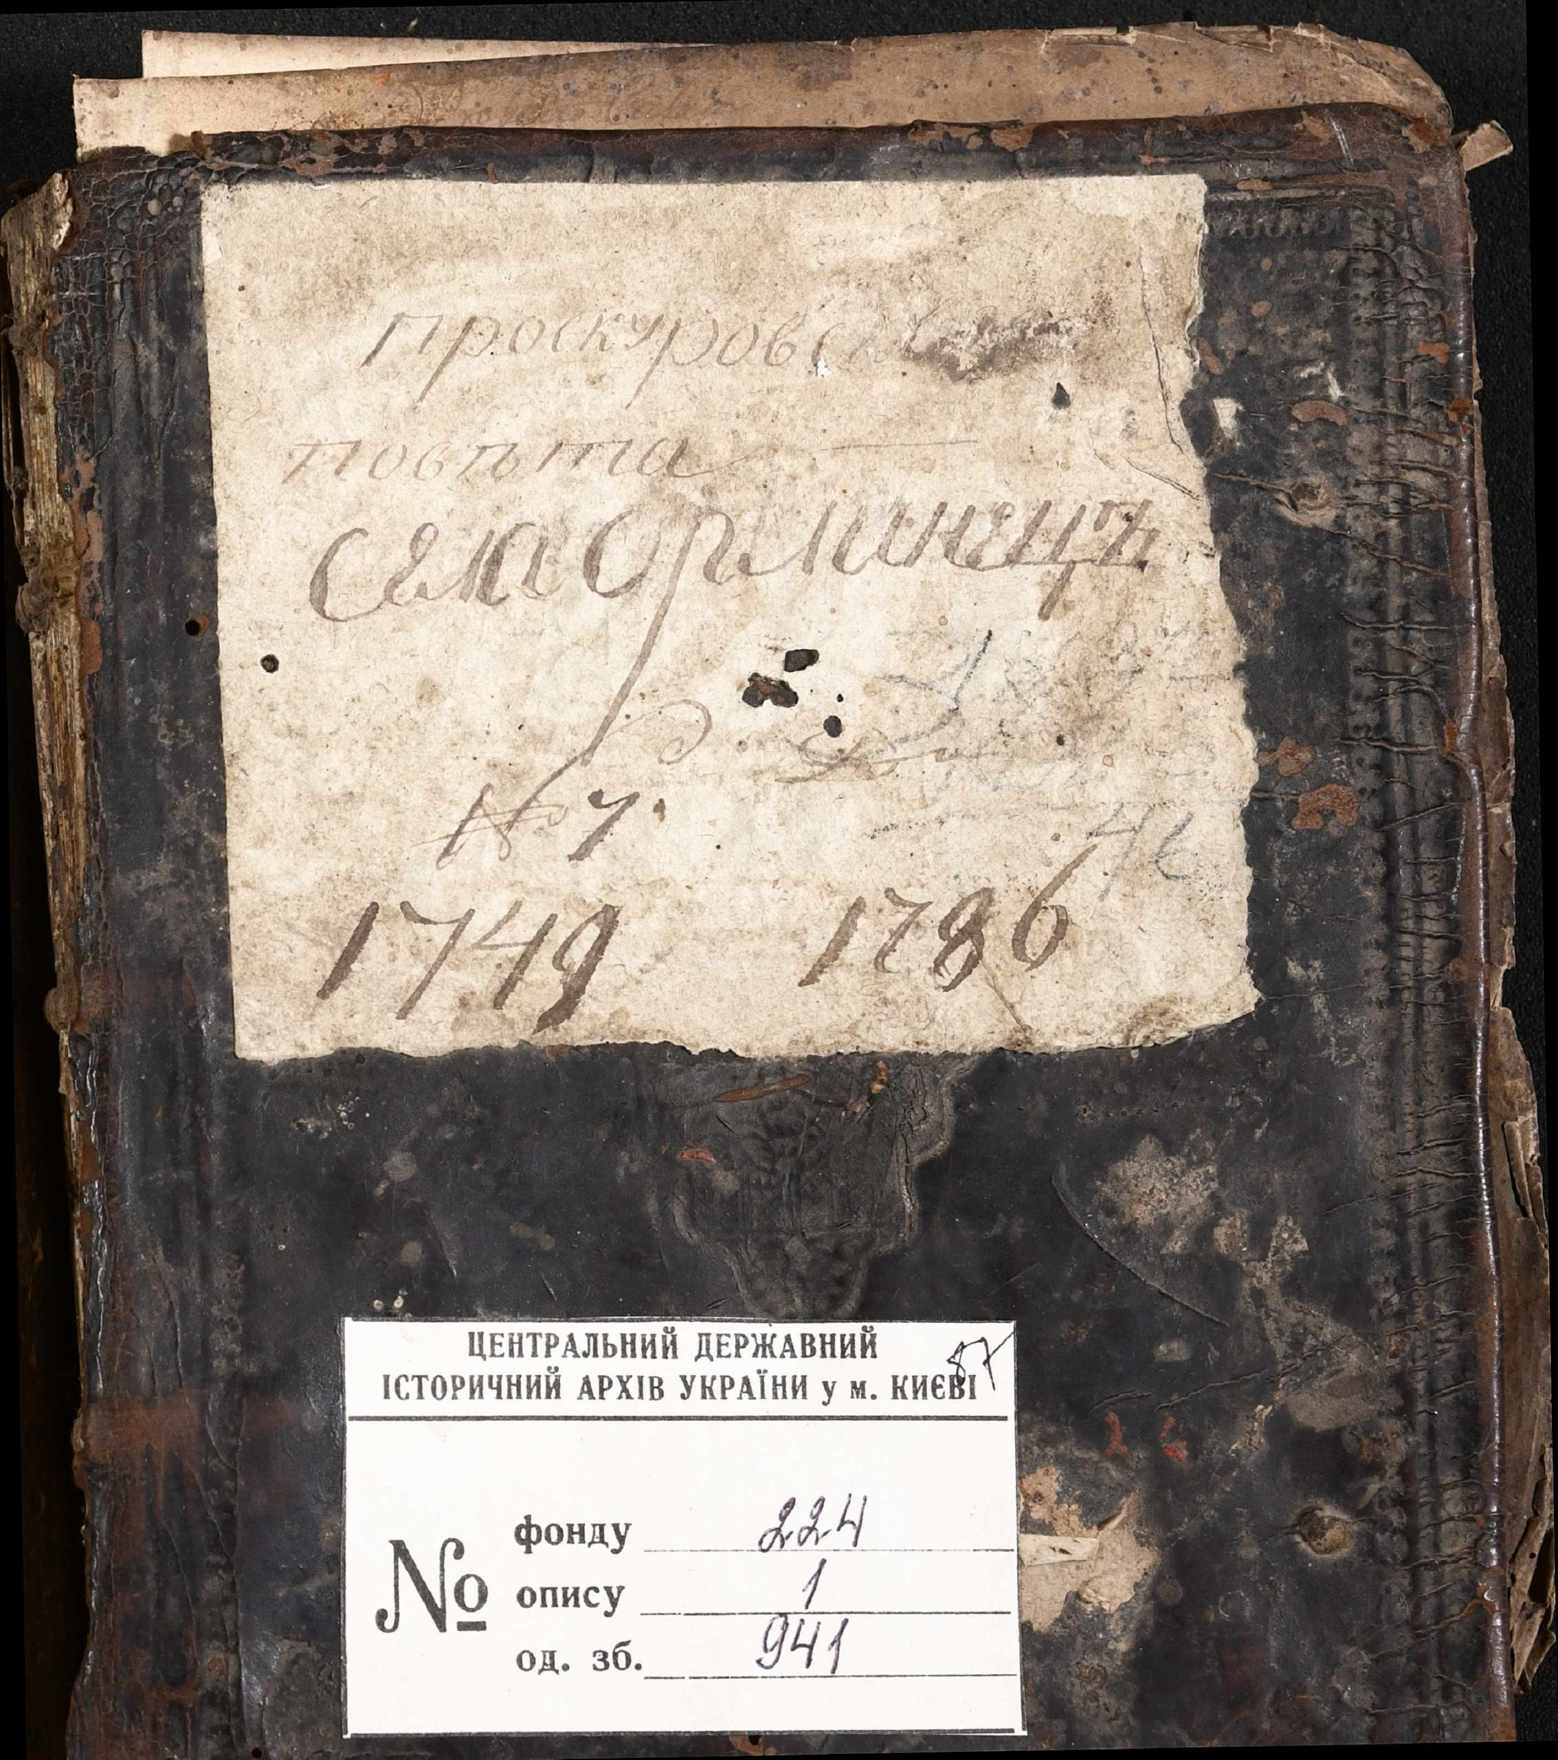 Проскуровск
повѣта
Села Орлинецъ
№ 7.
1749 1786
46
ЦЕНТРАЛЬНИЙ ДЕРЖАВНИЙ
87
ІСТОРИЧНИЙ АРХІВ УКРАЇНИ у м. КИЄВІ
№
фонду 224
опису 1
од. зб. 941